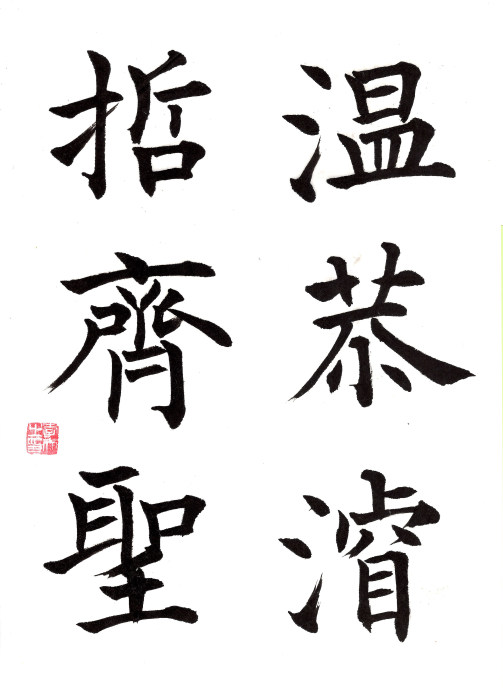 温恭濬
哲齊聖